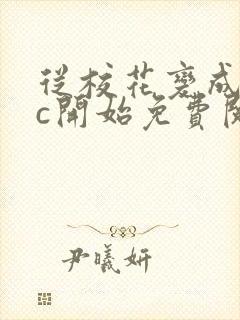 從校花變成
c開始免費閱
尹曦妍